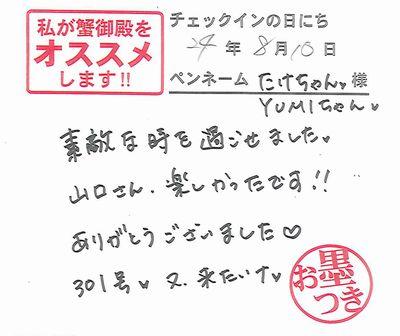 私が蟹御殿を
オススメ
します!!
チェックインの日にち
24年8月10日
ペンネーム たけちゃん♥様
YUMIちゃん♥
素敵な時を過ごせました。
山口さん、楽しかったです!!
ありがとうございました♡
301号♥ 又、来たいナ♥
お墨つき